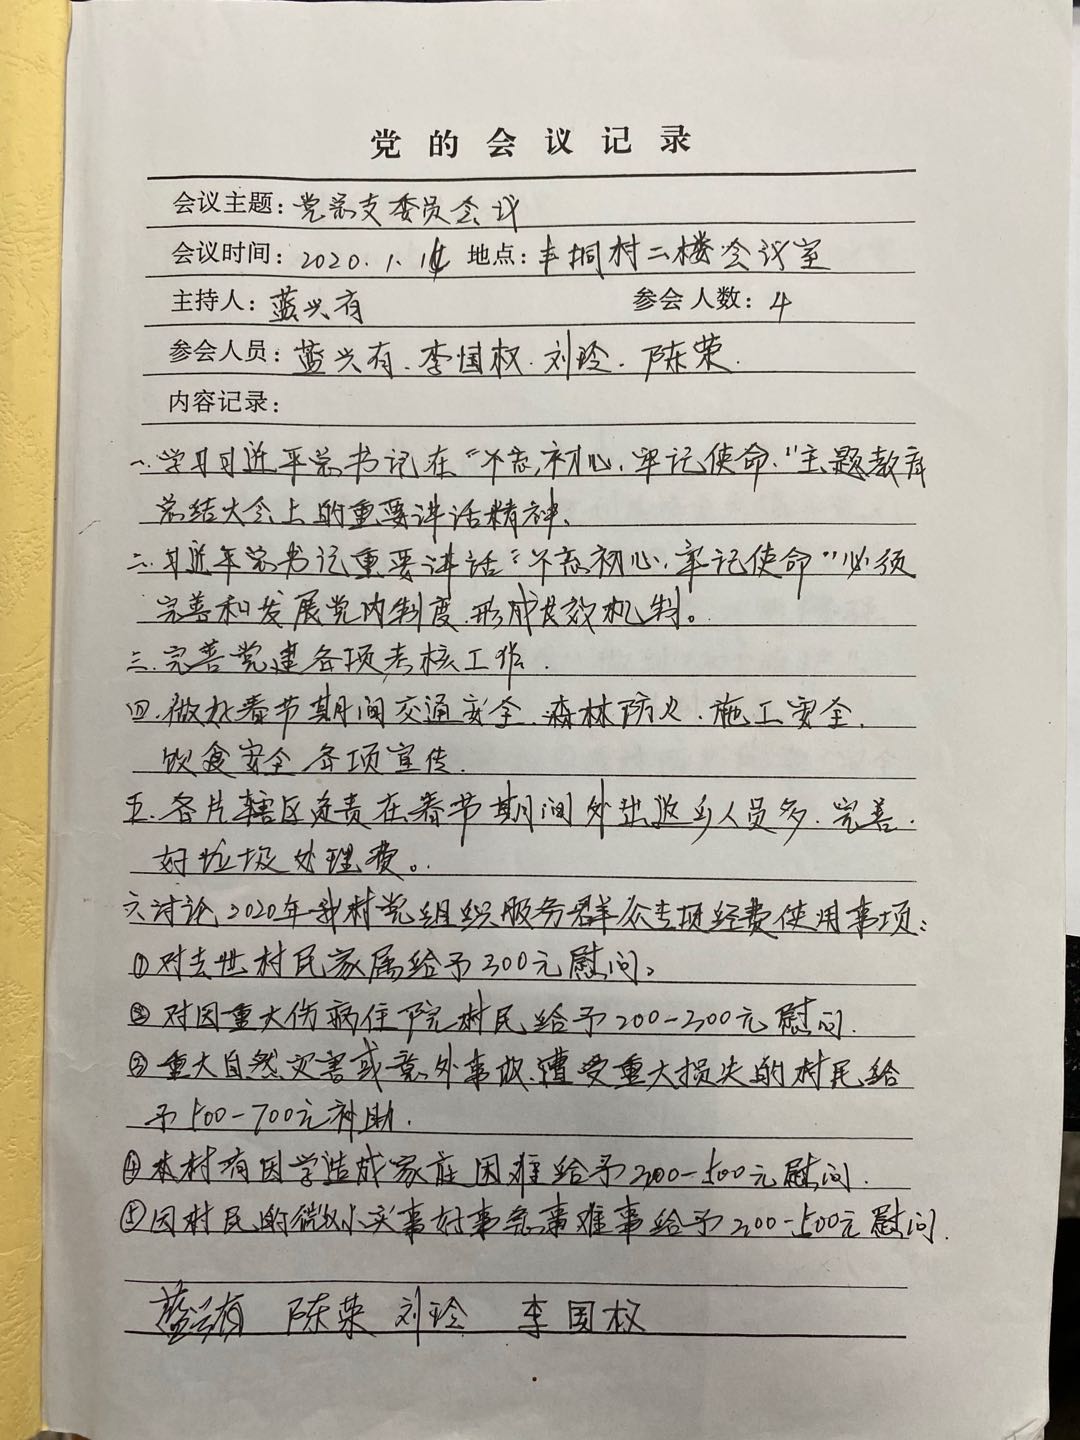 党的会议记录
会议主题：党总支委员会议
会议时间：2020.1.14 地点：丰桐村二楼会议室
主持人：蓝兴有 参会人数：4
参会人员：蓝兴有.李国权.刘玲.陈荣.
内容记录：
一.学习习近平总书记在“不忘初心.牢记使命.”主题教育
总结大会上的重要讲话精神.
二.习近平总书记重要讲话“不忘初心.牢记使命”必须
完善和发展党内制度.形成长效机制。
三.完善党建各项考核工作.
四.做好春节期间交通安全.森林防火.施工安全.
饮食安全各项宣传.
五.各片辖区负责在春节期间外出返乡人员多.完善.
好垃圾处理费。
六.讨论2020年我村党组织服务群众专项经费使用事项：
①对去世村民家属给予300元慰问。
②对因重大伤病住院村民给予200-300元慰问.
③重大自然灾害或意外事故.遭受重大损失的村民给
予500-700元补助.
④本村有因学造成家庭困难给予300-500元慰问.
⑤因村民的微小实事好事急事难事给予200-500元慰问.
蓝兴有 陈荣 刘玲 李国权